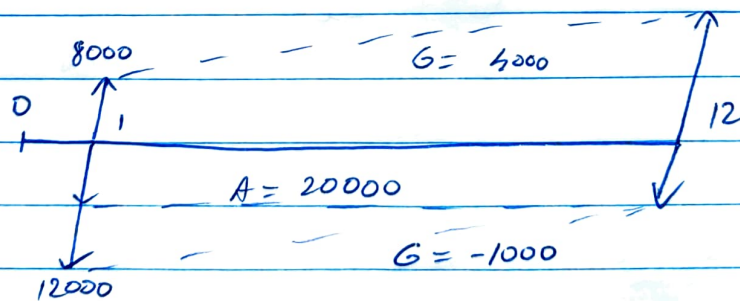 8000
G = 4000
0
1
12
A = 20000
G = -1000
12000